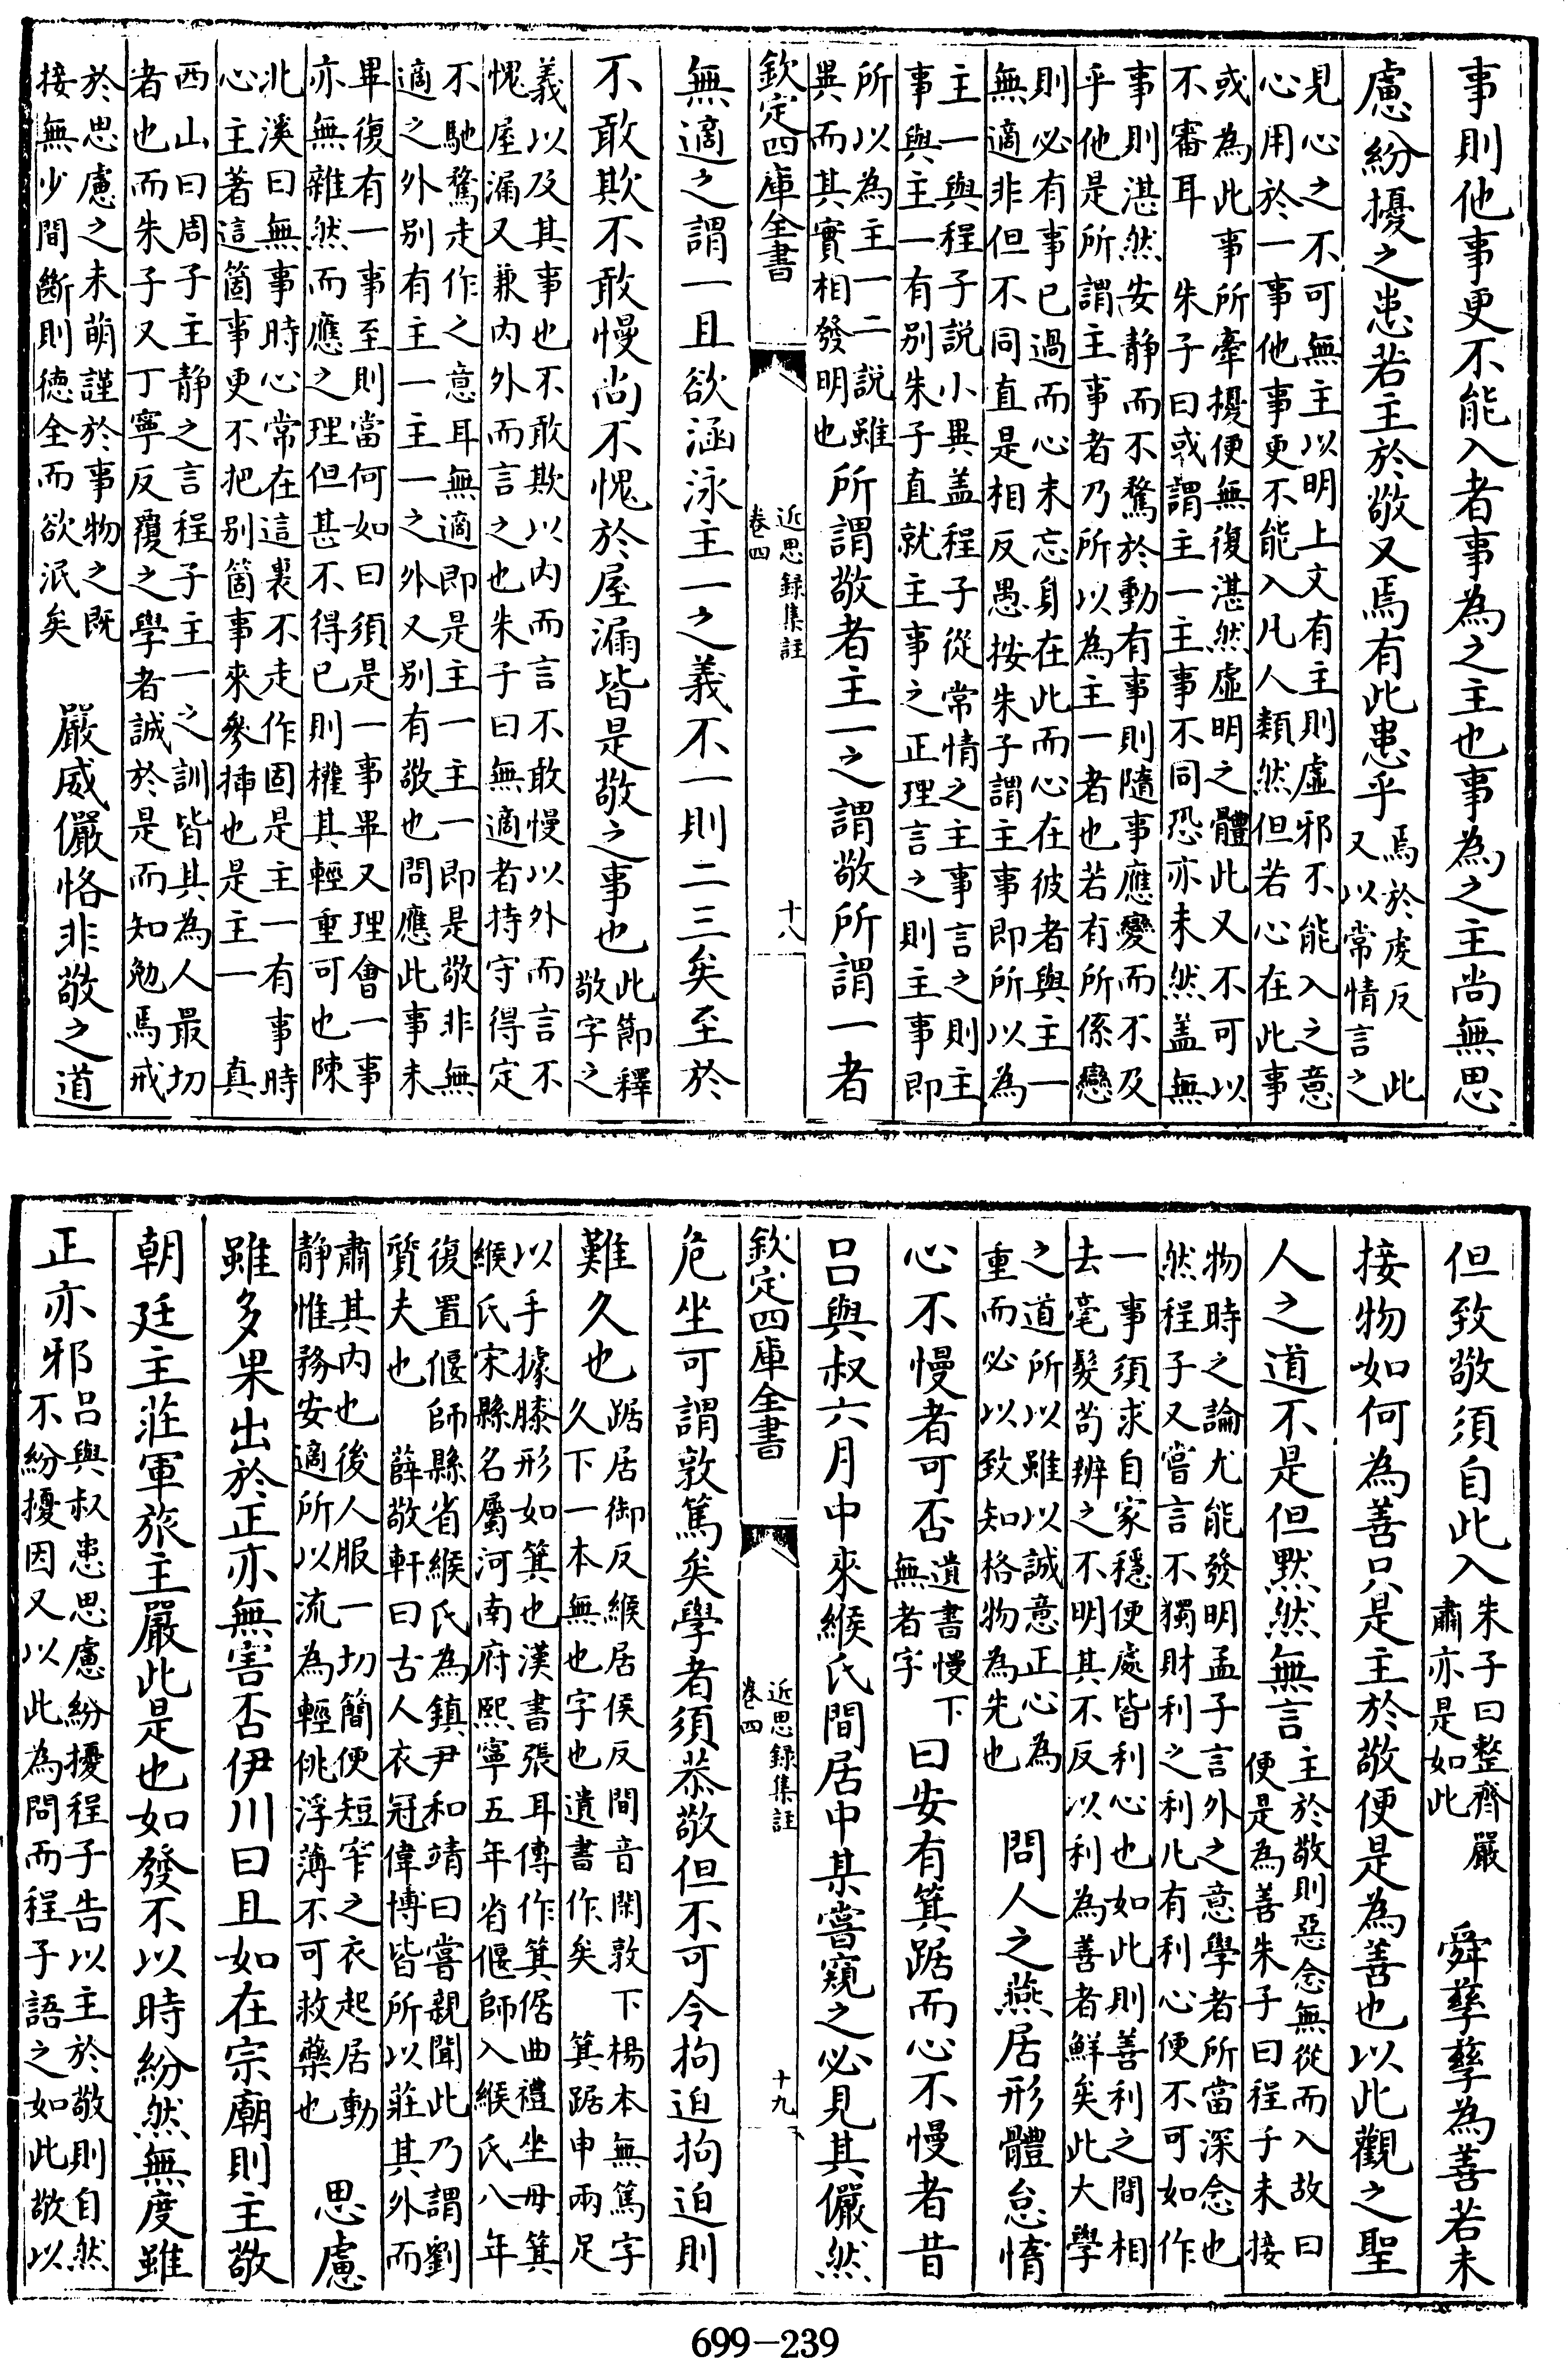 事則他事更不能入者事為之主也事為之主尚無思
慮紛擾之患若主於敬又焉有此患乎
焉於虔反　此
又以常情言之
見心之不可無主以明上文有主則虛邪不能入之意
心用於一事他事更不能入凡人類然但若心在此事
或為此事所牽擾便無復湛然虛明之體此又不可以
不審耳　朱子曰或謂主一主事不同恐亦未然盖無
事則湛然安静而不騖於動有事則隨事應變而不及
乎他是所謂主事者乃所以為主一者也若有所係戀
則必有事已過而心未忘身在此而心在彼者與主一
無適非但不同直是相反愚按朱子謂主事即所以為
主一與程子説小異盖程子從常情之主事言之則主
事與主一有别朱子直就主事之正理言之則主事即
所以為主一二説雖
異而其實相發明也
所謂敬者主一之謂敬所謂一者
欽定四庫全書
近思録集註
卷四
十八
無適之謂一且欲涵泳主一之義不一則二三矣至於
不敢欺不敢慢尚不愧於屋漏皆是敬之事也
此節釋
敬字之
義以及其事也不敢欺以内而言不敢慢以外而言不
愧屋漏又兼内外而言之也朱子曰無適者持守得定
不馳騖走作之意耳無適即是主一主一即是敬非無
適之外别有主一主一之外又别有敬也問應此事未
畢復有一事至則當何如曰須是一事畢又理會一事
亦無雜然而應之理但甚不得已則權其輕重可也陳
北溪曰無事時心常在這裏不走作固是主一有事時
心主著這箇事更不把别箇事來參插也是主一　真
西山曰周子主静之言程子主一之訓皆其為人最切
者也而朱子又丁寧反覆之學者誠於是而知勉焉戒
於思慮之未萌謹於事物之既
接無少間斷則徳全而欲泯矣
嚴威儼恪非敬之道
但致敬須自此入
朱子曰整齊嚴
肅亦是如此
舜孳孳為善若未
接物如何為善只是主於敬便是為善也以此觀之聖
人之道不是但默然無言
主於敬則惡念無從而入故曰
便是為善朱子曰程子未接
物時之論尤能發明孟子言外之意學者所當深念也
然程子又嘗言不獨財利之利凡有利心便不可如作
一事須求自家穩便處皆利心也如此則善利之間相
去毫髮苟辨之不明其不反以利為善者鮮矣此大學
之道所以雖以誠意正心為
重而必以致知格物為先也
問人之燕居形體怠惰
心不慢者可否
遺書慢下
無者字
曰安有箕踞而心不慢者昔
吕與叔六月中來緱氏間居中某嘗窺之必見其儼然
欽定四庫全書
近思録集註
卷四
十九
危坐可謂敦篤矣學者須恭敬但不可令拘迫拘迫則
難久也
踞居御反緱居侯反間音閑敦下楊本無篤字
久下一本無也字也遺書作矣　箕踞申兩足
以手據膝形如箕也漢書張耳傳作箕倨曲禮坐毋箕
緱氏宋縣名屬河南府熙寧五年省偃師入緱氏八年
復置偃師縣省緱氏為鎮尹和靖曰嘗親聞此乃謂劉
質夫也　薛敬軒曰古人衣冠偉博皆所以莊其外而
肅其内也後人服一切簡便短窄之衣起居動
静惟務安適所以流為輕佻浮薄不可救藥也
思慮
雖多果出於正亦無害否伊川曰且如在宗廟則主敬
朝廷主莊軍旅主嚴此是也如發不以時紛然無度雖
正亦邪
吕與叔患思慮紛擾程子告以主於敬則自然
不紛擾因又以此為問而程子語之如此敬以
699-239